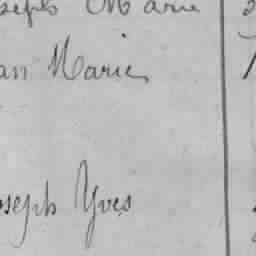 oseph Marie
an Marie
oseph Yves